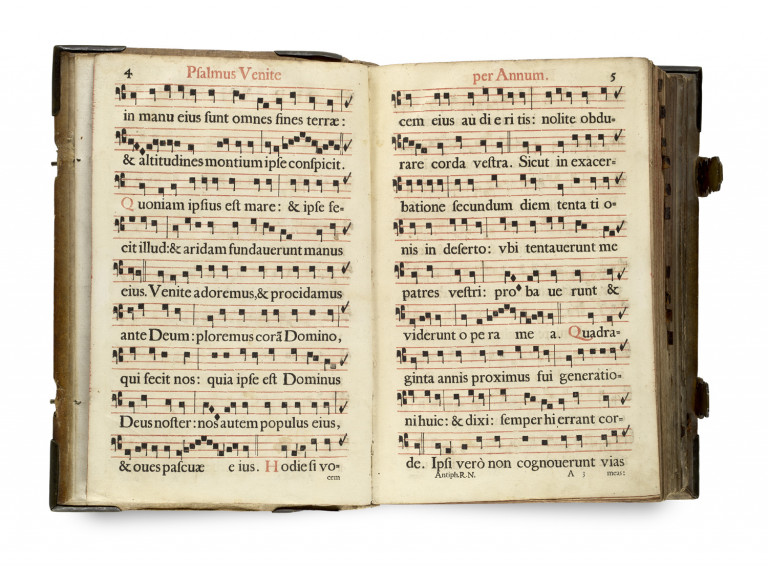 4
Pſalmus Venite
in manu eius ſunt omnes fines terræ:
& altitudines montium ipſe conſpicit.
Quoniam ipſius eſt mare: & ipſe fe-
cit illud: & aridam fundauerunt manus
eius. Venite adoremus, & procidamus
ante Deum: ploremus corā Domino,
qui fecit nos: quia ipſe eſt Dominus
Deus noſter: nos autem populus eius,
& oues paſcuæ e ius. Hodie ſi vo-
cem
per Annum.
5
cem eius au di e ri tis: nolite obdu-
rare corda veſtra. Sicut in exacer-
batione ſecundum diem tenta ti o-
nis in deſerto: vbi tentauerunt me
patres veſtri: pro ba ue runt &
viderunt o pe ra me a. Quadra-
ginta annis proximus fui generatio-
ni huic: & dixi: ſemper hi errant cor-
de. Ipſi verò non cognouerunt vias
Antiph. R. N.
A 3
meas: